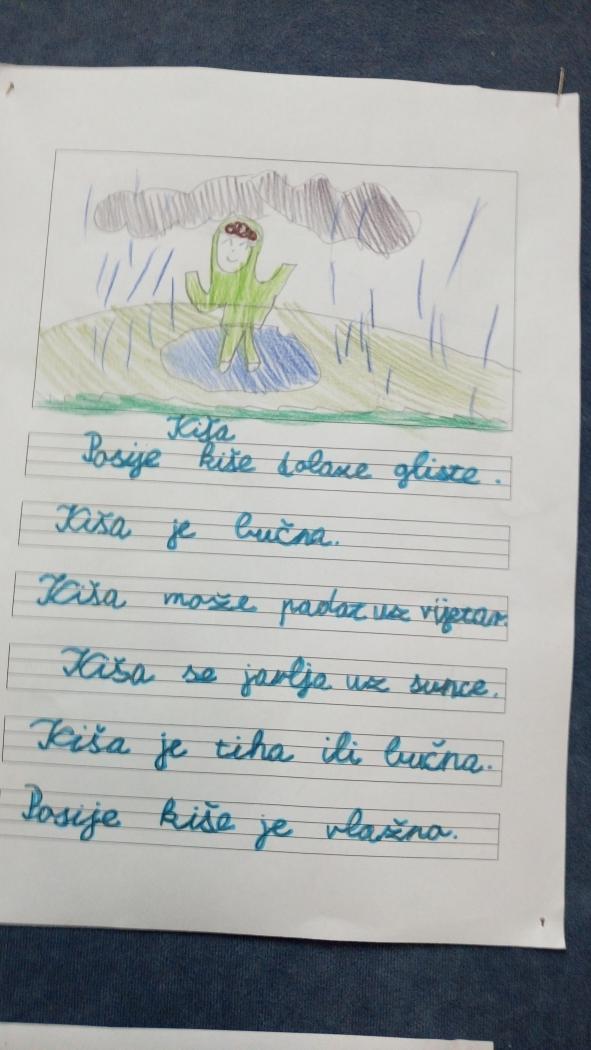 Kiša
Poslje kiše dolaze gliste.
Kiša je bučna.
Kiša može padat uz vijetar.
Kiša se javlja uz sunce.
Kiša je tiha ili bučna.
Poslje kiše je vlažno.